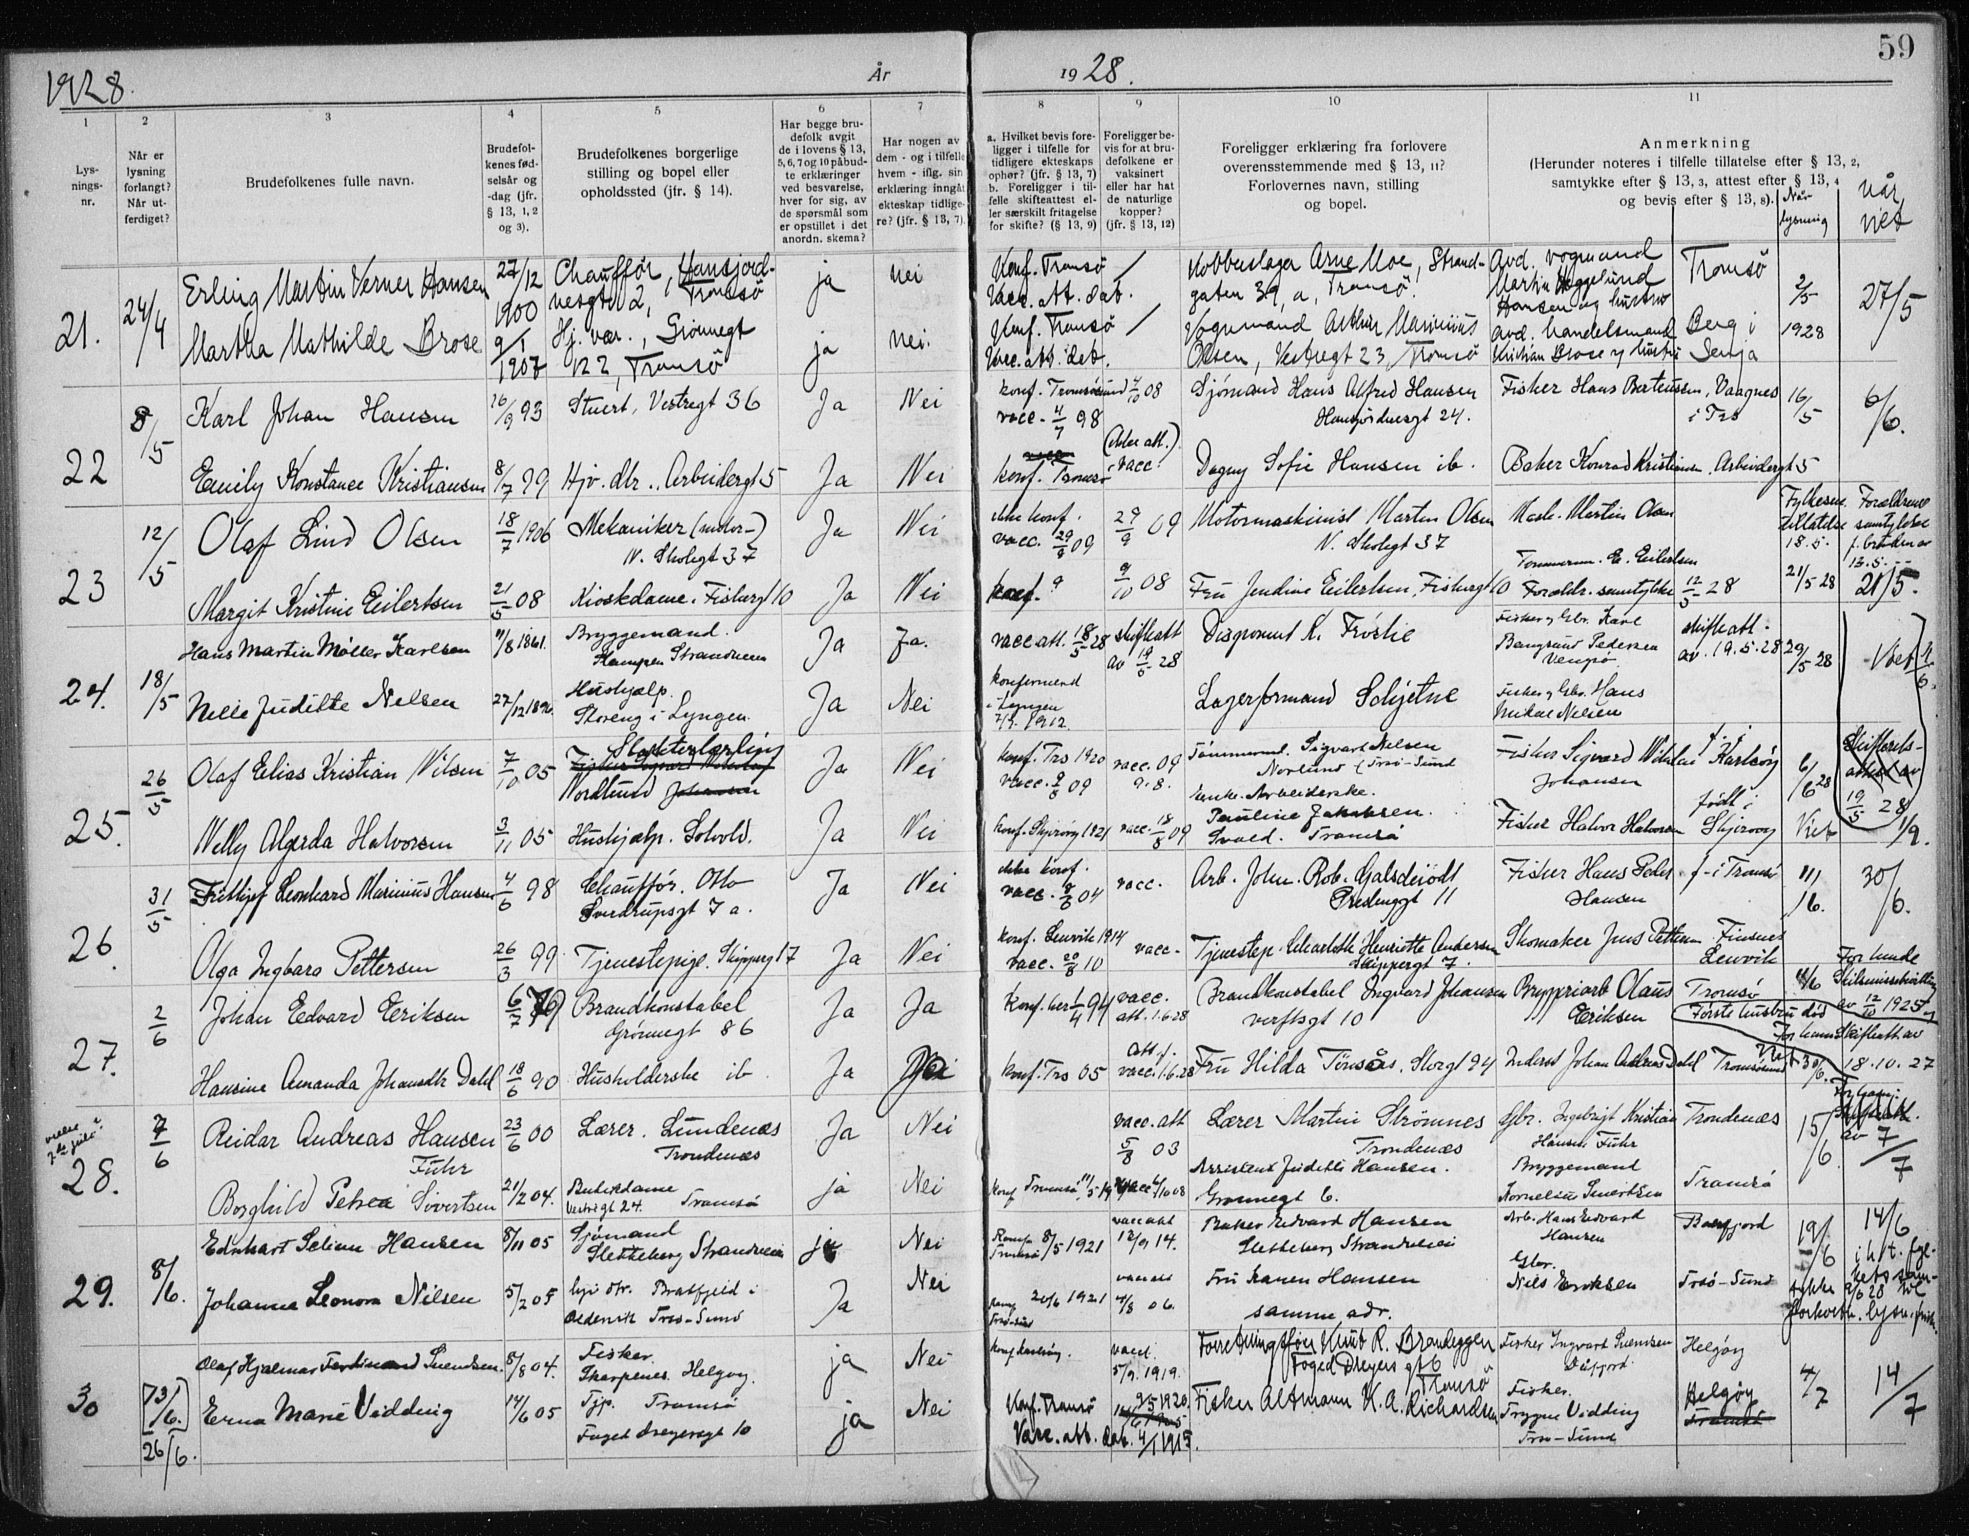 59
1928.
År
19 28.
1
2
3
4
5
6
7
8
9
10
11
Lysnings-nr.
Når er lysning forlangt? Når utferdiget?
Brudefolkenes fulle navn.
Brudefolkenes fødselsår og -dag (jfr. § 13, 1, 2 og 3).
Brudefolkenes borgerlige stilling og bopel eller opholdssted (jfr. § 14).
Har begge brudefolk avgit de i lovens § 13, 5, 6, 7 og 10 påbudte erklæringer ved besvarelse, hver for sig, av de spørsmål som er opstillet i det anordn. skema?
Har nogen av dem - og i tilfelle hvem - iflg. sin erklæring inngåt ekteskap tidligere? (jfr. § 13, 7).
a. Hvilket bevis foreligger i tilfelle for tidligere ekteskaps ophør? (jfr. § 13, 7) b. Foreligger i tilfelle skifteattest eller særskilt fritagelse for skifte? (§ 13, 9)
Foreligger bevis for at brudefolkene er vaksinert eller har hat de naturlige kopper? (jfr. § 13, 12)
Foreligger erklæring fra forlovere overensstemmende med § 13, 11? Forlovernes navn, stilling og bopel.
Anmerkning (Herunder noteres i tilfelle tillatelse efter § 13, 2, samtykke efter § 13, 3, attest efter § 13, 4 og bevis efter § 13, 8).
Når lysning
når viet
21. 24/4 Erling Martin Verner Hansen 27/12 1900 Chauffør, Hansjordnesgt 2, Tromsö ja nei Konf. Tromsö / Vacc. att. dat. Kobberslager Arne Moe, Strandgaten 39, a, Tromsö. Avd. vogmand Martin Heggelund Hansen og hustru Tromsö 2/5 1928 27/5
Martha Mathilde Brose 9/1 1907 Hj. vær., Grönnegt 122, Tromsö ja nei. Konf. Tromsö / Vacc. att. dat. Vogmand Arthur Marinius Olsen, Vestregt 23, Tromsö Avd. handelsmand Kristian Brose og hustru Berg i Senja
22 8/5 Karl Johan Hansen 26/9 93 Stuert, Vestregt 36 Ja Nei konf. Tromsøsund 4/10 08 vacc. 4/7 98 Sjømand Hans Alfred Hansen Hansjordnesgt 24. Fisker Hans Berteussen, Vaagnes i Trs 16/5 6/6.
Emily Konstance Kristiansen 8/7 99 Hjv. dtr., Arbeidergt 5 Ja Nei konf. Tromsø vacc. Dagny Sofie Hansen ib. Baker Konrad Kristiansen, Arbeidergt 5
23 12/5 Olaf Lind Olsen 18/7 1906 Mekaniker (motor-) N. Skolegt 37 Ja Nei ikke konf. vacc. 29/9 09 29/9 09 Motormaskinist Martin Olsen N. Skolegt 37 Mask. Martin Olsen Fylkesm. tillatelse 18.5. Forældrenes samtykke f. bruden av 13.5.
Margit Kristine Eilertsen 21/5 08 Kioskdame. Fiskergt 10 Ja Nei konf. 9/10 08 Fru Jendine Eilertsen, Fiskergt 10 Tømmerm. E. Eilertsen Forældr. samtykke 12/5 28 21/5 28 21/5.
24. 18/5 Hans Martin Møller Karlsen 11/8 1861. Bryggemand. Kampen Strandveien Ja Ja. vacc att. 18/5 28 skifteatt av 19/5 28 Disponent K. Frøslie Fisker og Gbr. Karl Bangsund Pedersen Vengsø skifteatt. av. 19.5.28 29/5 28 Viet
Nelle Juditte Nelsen 27/12 Hushjælp. Storeng i Lyngen. Ja Nei konfirmend i Lyngen 7/7. 1912. Lagerformand Schjetne Fisker og Gbr. Hans Mikal Nelsen
25. 26/5 Olaf Elias Kristian Nilsen 7/10 05 Slakterlærling Nordlund Ja Nei konf. Trs 1920 vacc. 9/8 09 vacc. 09 9.8. Tømmermd. Sigvart Nelsen Norlund i Trsö-Sund Fisker Sigvard Nikolai Johansen f. i Karlsöy 6/6 28 Skifterets-attest av 19/5 28
Nelly Algarda Halvorsen 3/11 05 Hushjælp. Solvold. Ja Nei konf. Skjervøy 1921 vacc. 18/8 09 Enke. Arbeiderske. Pauline Jakobsen. Svoed. Tromsö Fisker Halvor Halvorsen født i Skjervøy Viet 1/9.
26. 31/5 Fritjof Leonhard Marinius Hansen 4/6 98 Chauffør. Otto Sverdrupsgt 7 a. Ja Nei ikke konf. vacc. 8/6 04 vacc. Arb. John. Rob. Galsdeiodt Predenggt 11 Fisker Hans Peder Hansen f. i Tromsö 11/6. 30/6.
Olga Ingbara Pettersen 26/3 99 Tjenestepige. Skippergt 7 Ja Nei konf. Lenvik 1914 vacc. 20/8 10 vacc. Tjenestep. Charlotte Henriette Andersen Skippergt 7. Skomaker Jens Pettersen Finsnes Lenvik
27. 2/6 Johan Edvard Eriksen 6/7 79 Brandkonstabel Grönnegt 86 Ja Ja konf. her 1/4 94 vacc. att. 1.6.28 Brandkonstabel Ingvard Johansen verftsgt 10 Bryggiarb Olaus Eriksen Tromsø Første hustru død For hende Skilsmissebevilling av 12/10 1925
Hansine Amanda Johansdtr Dahl 18/6 90 Husholderske ib. Ja konf. Trs 05 att. f. vacc. 1.6.28 Fru Hilda Tönsås, Storgt 94 Inderst Johan Andreas Dahl Tromsøsund Viet 30/6. For ham Skifteatt. av 18.10.27
28. 7/6 Reidar Andreas Hansen Fuhr 23/6 00 Lærer. Lundenæs Trondenæs Ja Nei vacc. att 5/8 03 Lærer Martin Strømnes Trondenæs Gbr. Ingebrigt Kristian Hansen Fuhr Trondenæs 15/6 7/7
Borghild Petrea Sivertsen 21/2 04. Butikdame Vestregt 24. Tromsö ja Nei Konf. Tromsø, vacc 6/10 08 Assistent Judith Hansen. Grønnegt 6. Bryggemand Kornelius Sivertsen Tromsö
29. 8/6. Edvhart Selian Hansen 8/11 05 Sjømand Sletteberg Strandveien ja Nei Konf. Tromsø 8/5 1921 vacc att 12/9 14. Baker Edvard Hansen Sletteberg Strandveien Arb. Hans Edvard Hansen 19/6 14/6
Johanna Leonora Nilsen 5/2 05 hjv. dtr. Bratfjeld i Oldervik Trsö-Sund Ja Nei Konf. Trsö-sund 20/6 1921 vacc att 4/8 06. Fru Karen Hansen samme adr. Gbr. Nils Eriksen Trsö-Sund
30 [13/6.] 26/6. Olaf Hjalmar Ferdinand Svendsen. 8/8 04. Fisker. Skarpenes. Helgøy. ja Nei Konf Karlsøy. vacc. 5/9. 1919. Forretningsfører Knut R. Brandeggen Foged Dreyers gt 6 Tromsö Fisker Ingvart Svendsen Dåfjord. Helgøy 4/7 14/7
Erna Marie Vidding 14/6 05 Tjp. Tromsö Foged Dreyersgt 10 ja Nei Konf. Tromsö 2/5 1920 Vacc. att. dat. 4/1 1915. Fisker Altmann K. A. Richardsen Fisker. Trygve Vidding Trsö-Sund Helgøy